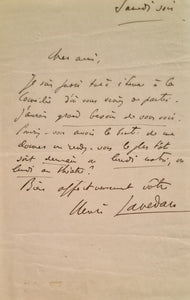 Samedi soir
Cher ami,
Je suis passé très à l'heure à la
Comédie d'où vous veniez de partir.
J'aurais grand besoin de vous voir.
Pouvez-vous avoir la bonté de me
donner un rendez-vous le plus tôt
soit demain à
lundi au théâtre?
Bien affectueusement vôtre
Henri Lavedan